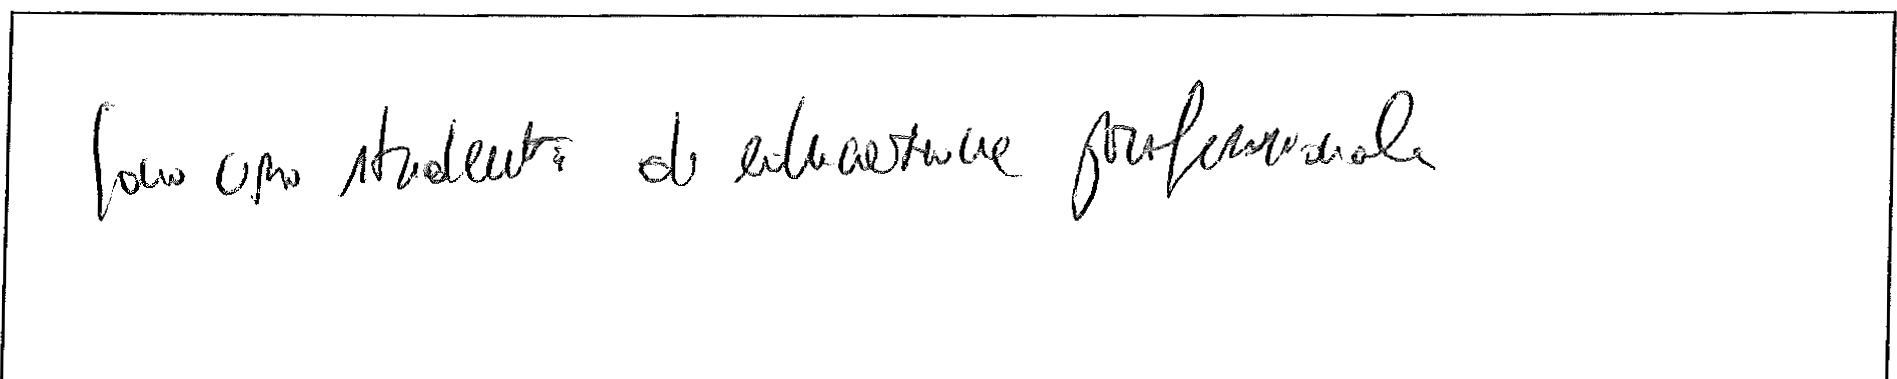 sono uno studente di educazione professionale